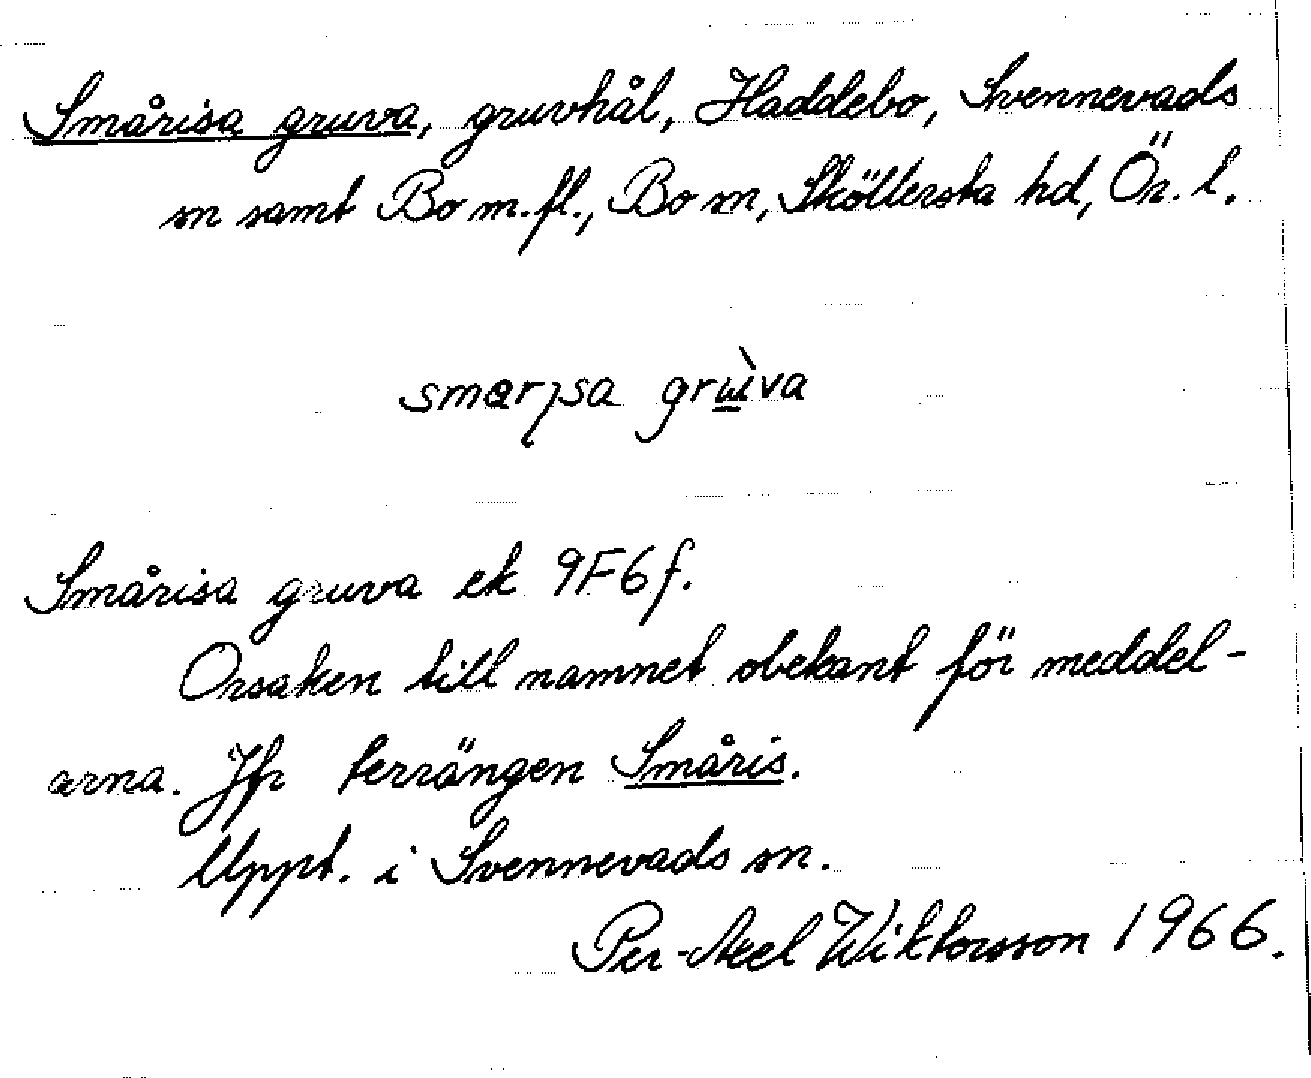 Smårisa gruva, gruvhål, Haddebo, Svennevads
sn samt Bo m.fl., Bo sn, Sköllersta hd, Ör. l.
smarısa gruva
Smårisa gruva ek 9F6f.
Orsaken till namnet obekant för meddel-
arna. Jfr terrängen Småris.
Uppt. i Svennevads sn.
Per-Axel Wiktorsson 1966.